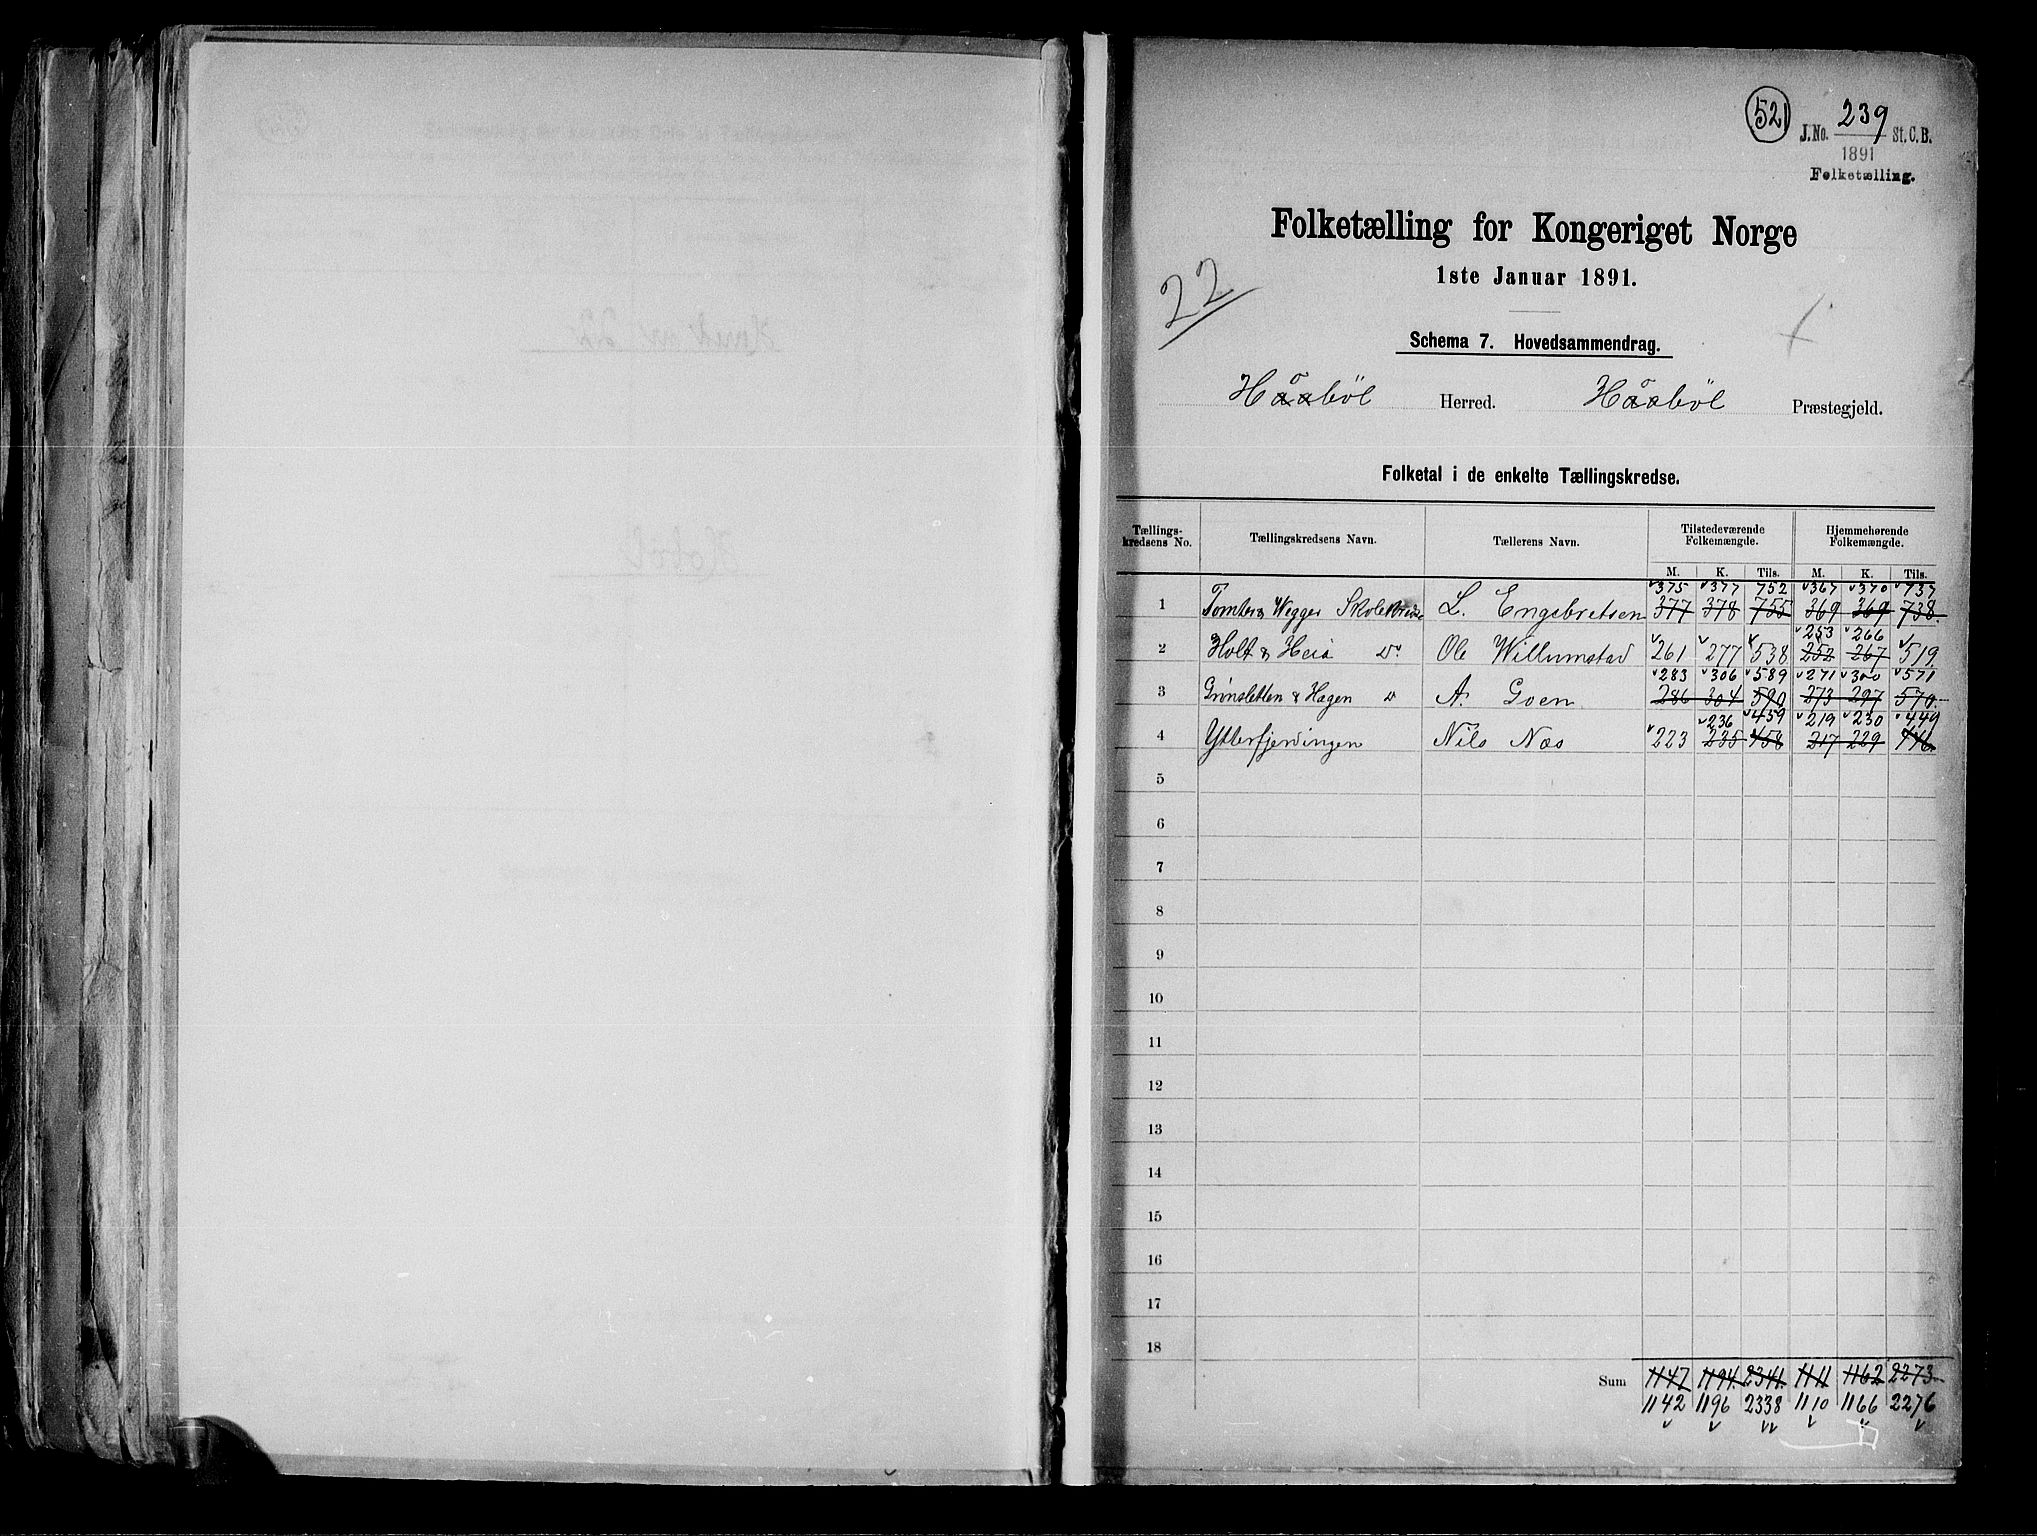 521
J. No. 239 St. C. B.
1891
Folketælling.
Folketælling for Kongeriget Norge
1ste Januar 1891.
22
Schema 7. Hovedsammendrag.
Haabøl Herred. Haabøl Præstegjeld.
Folketal i de enkelte Tællingskredse.
Tællings-kredsens No. Tællingskredsens Navn. Tællerens Navn. Tilstedeværende Folkemængde. Hjemmehørende Folkemængde.
M. K. Tils. M. K. Tils.
375 377 752 367 370 737
1 Tomter & Wegger Skolekreds L. Engebretsen 377 378 755 369 369 738
253 266
2 Holt & Heia Do Ole Willumstad 261 277 538 252 267 519
283 306 589 271 300 571
3 Grønsletten & Hagen Do A. Goen 286 304 590 273 297 570
236 459 219 230 449
4 Ytterfjerdingen Nils Næs 223 235 458 217 229 446
5
6
7
8
9
10
11
12
13
14
15
16
17
18
Sum 1147 1194 2341 1111 1162 2273
1142 1196 2338 1110 1166 2276